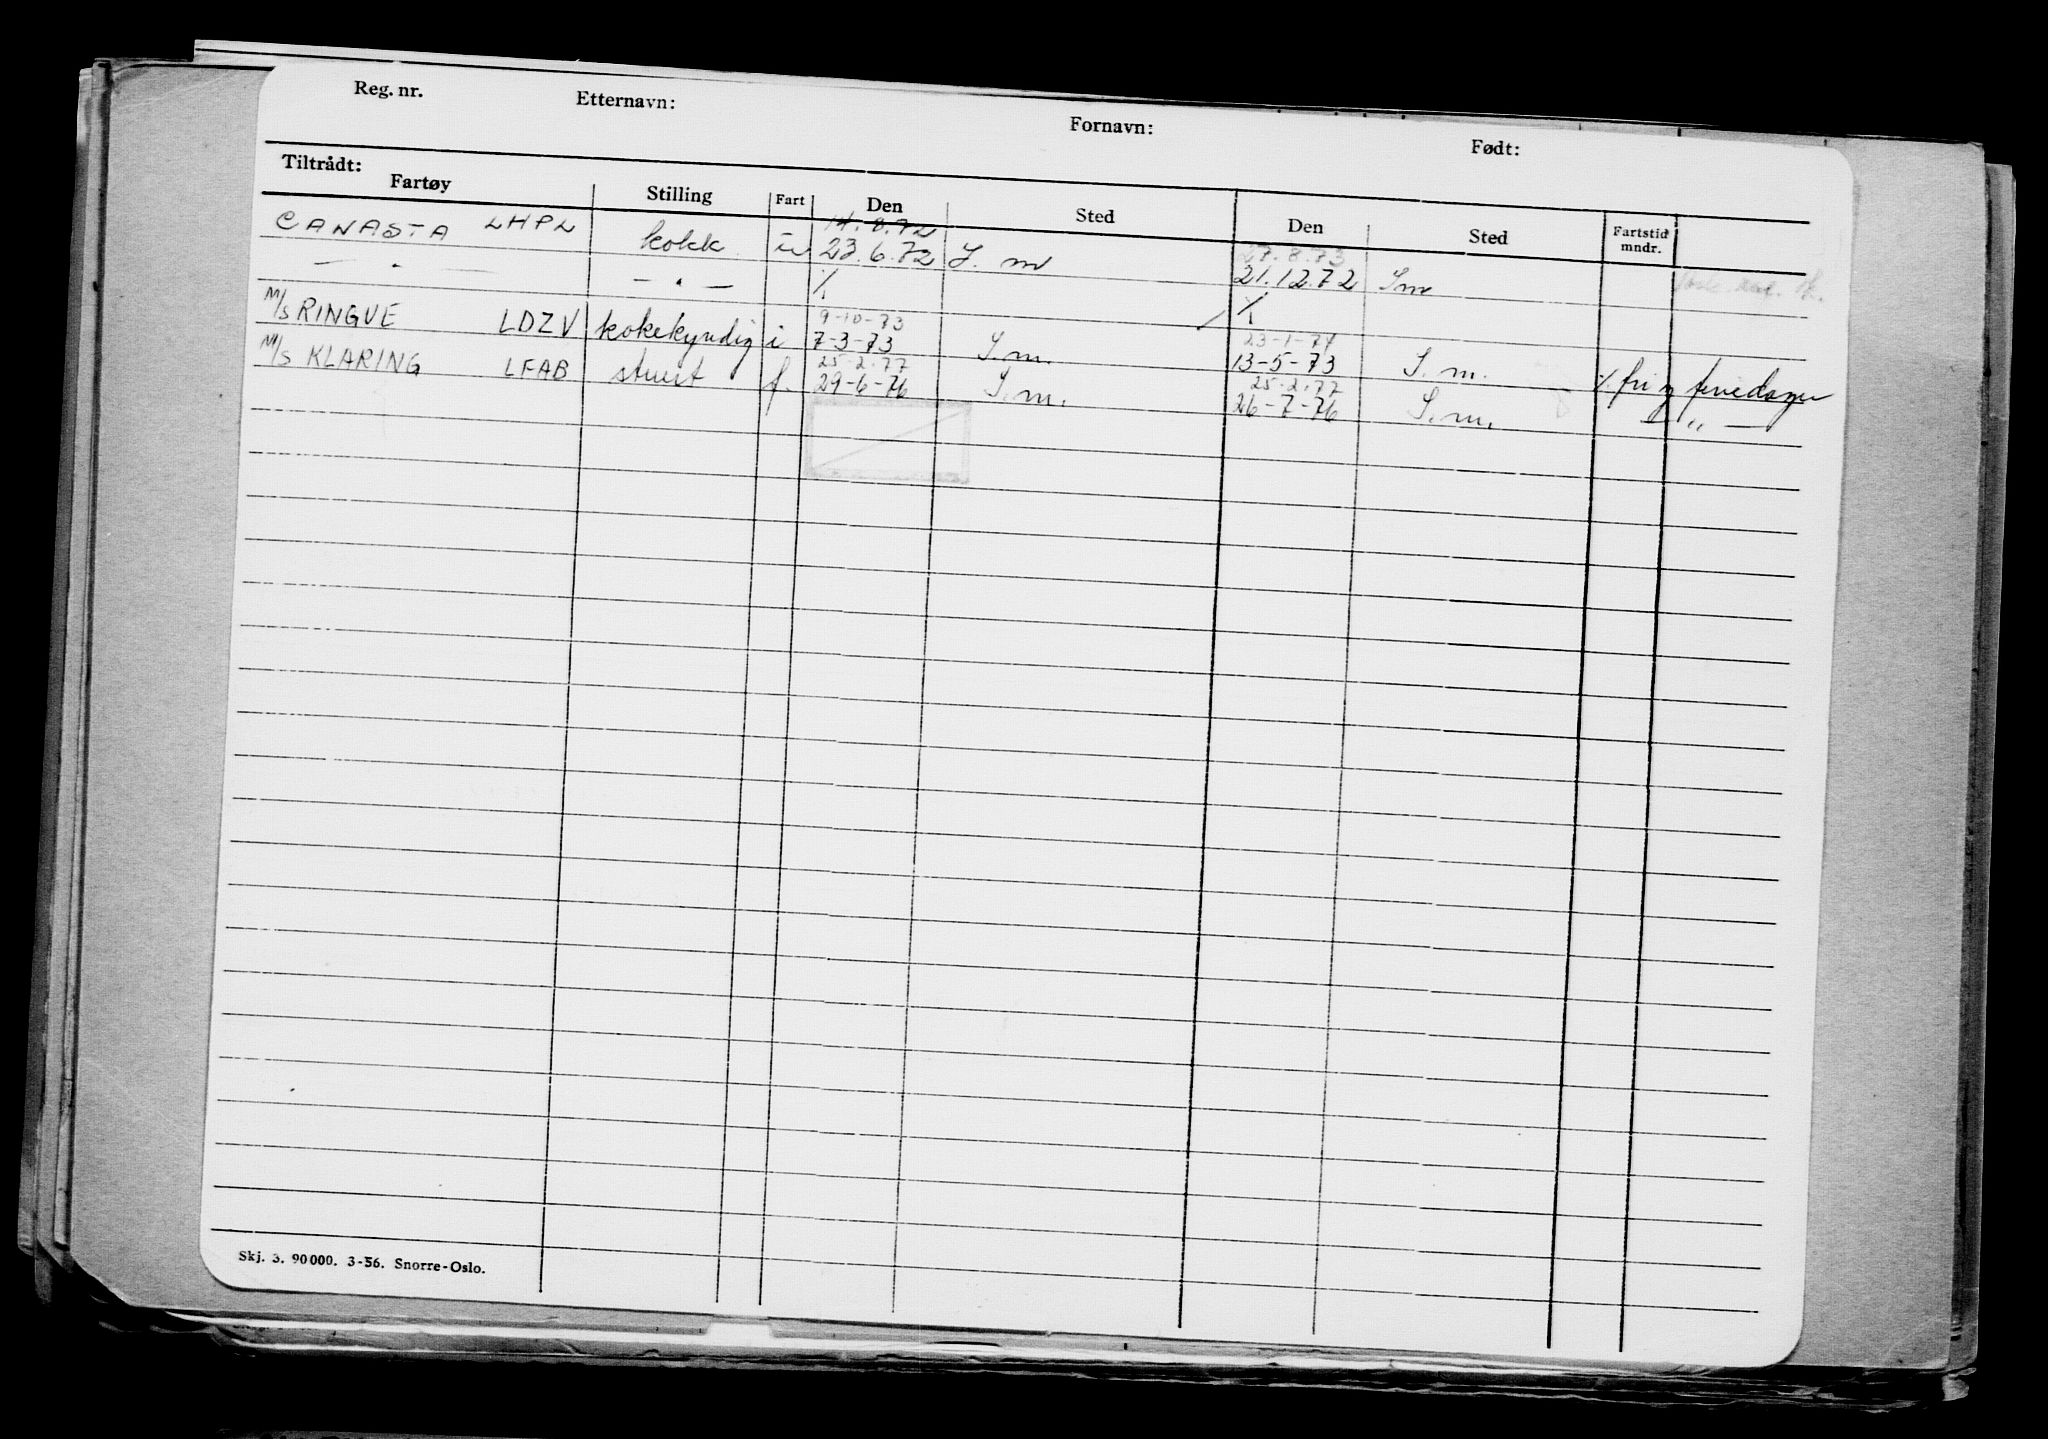 Reg. nr. Etternavn: Fornavn: Født:
Tiltrådt:
Fartøy Stilling Fart Den Sted Den Sted Fartstid mndr.
14.8.72 27.8.73
CANASTA LHPL kokk u 23.6.72 S. m 21.12.72 S m
— " — — " — ⁒ ⁒
9-10-73 23-1-74
M/S RINGVE LDZV kokekyndig i 7-3-73 S. m. 13-5-73 S. m. ⁒ fri og feriedager
25-2-77 25-2-77
M/S KLARING LFAB stuert f. 29-6-76 S. m. 26-7-76 S. m. — " —
Skj. 3. 90000. 3-56. Snorre-Oslo.